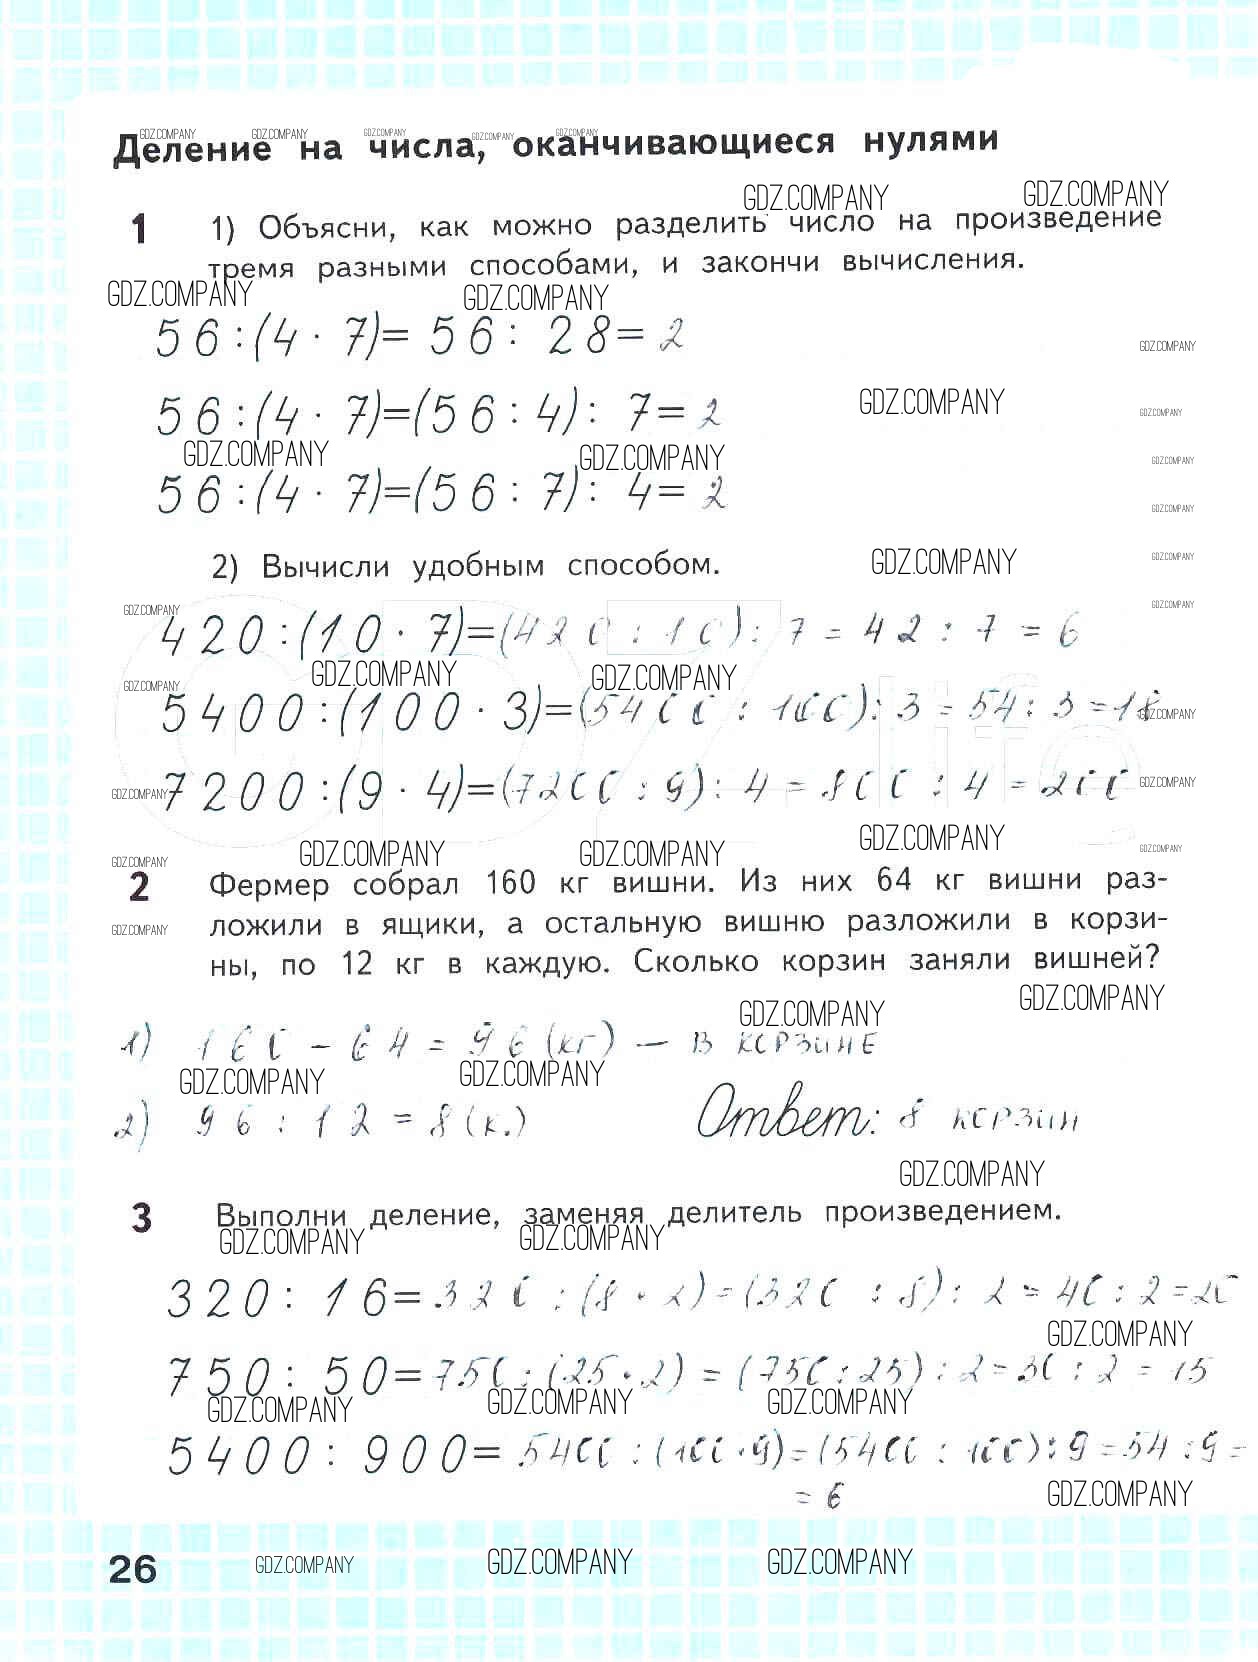 Деление на числа, оканчивающиеся нулями
1 1) Объясни, как можно разделить число на произведение
тремя разными способами, и закончи вычисления.
56:(4·7)=56:28=2
56:(4·7)=(56:4):7=2
56:(4·7)=(56:7):4=2
2) Вычисли удобным способом.
420:(10·7)=(420:10):7=42:7=6
5400:(100·3)=(5400:100):3=54:3=18
7200:(9·4)=(7200:9):4=800:4=200
2 Фермер собрал 160 кг вишни. Из них 64 кг вишни раз-
ложили в ящики, а остальную вишню разложили в корзи-
ны, по 12 кг в каждую. Сколько корзин заняли вишней?
1) 160-64=96(кг) — в корзине
2) 96:12=8(к.) Ответ: 8 корзин
3 Выполни деление, заменяя делитель произведением.
320:16=320:(8·2)=(320:8):2=40:2=20
750:50=750:(25·2)=(750:25):2=30:2=15
5400:900=5400:(100·9)=(5400:100):9=54:9=
=6
26
GDZ.COMPANY